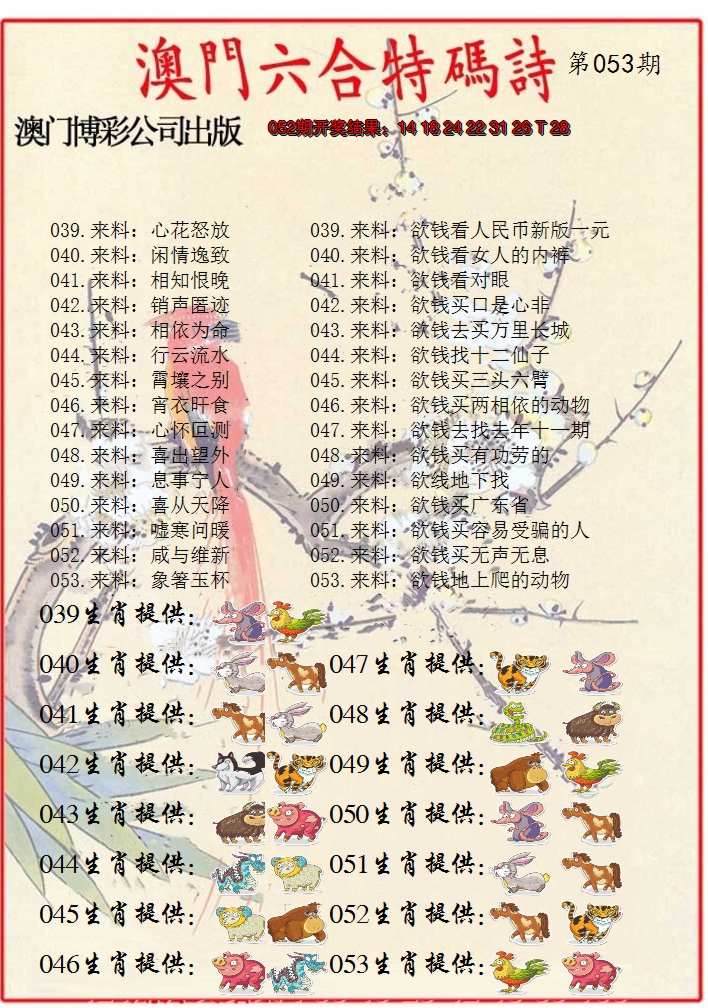 澳門六合特碼詩 第053期
澳门博彩公司出版 052期开奖结果：14 18 24 22 31 26 T 28
039.来料：心花怒放 039.来料：欲钱看人民币新版一元
040.来料：闲情逸致 040.来料：欲钱看女人的内裤
041.来料：相知恨晚 041.来料：欲钱看对眼
042.来料：销声匿迹 042.来料：欲钱买口是心非
043.来料：相依为命 043.来料：欲钱去买万里长城
044.来料：行云流水 044.来料：欲钱找十二仙子
045.来料：霄壤之别 045.来料：欲钱买三头六臂
046.来料：宵衣旰食 046.来料：欲钱买两相依的动物
047.来料：心怀回测 047.来料：欲钱去找去年十一期
048.来料：喜出望外 048.来料：欲钱买有功劳的
049.来料：息事宁人 049.来料：欲线地下找
050.来料：喜从天降 050.来料：欲钱买广东省
051.来料：嘘寒问暖 051.来料：欲钱买容易受骗的人
052.来料：咸与维新 052.来料：欲钱买无声无息
053.来料：象箸玉杯 053.来料：欲钱地上爬的动物
039生肖提供：
040生肖提供： 047生肖提供：
041生肖提供： 048生肖提供：
042生肖提供： 049生肖提供：
043生肖提供： 050生肖提供：
044生肖提供： 051生肖提供：
045生肖提供： 052生肖提供：
046生肖提供： 053生肖提供：